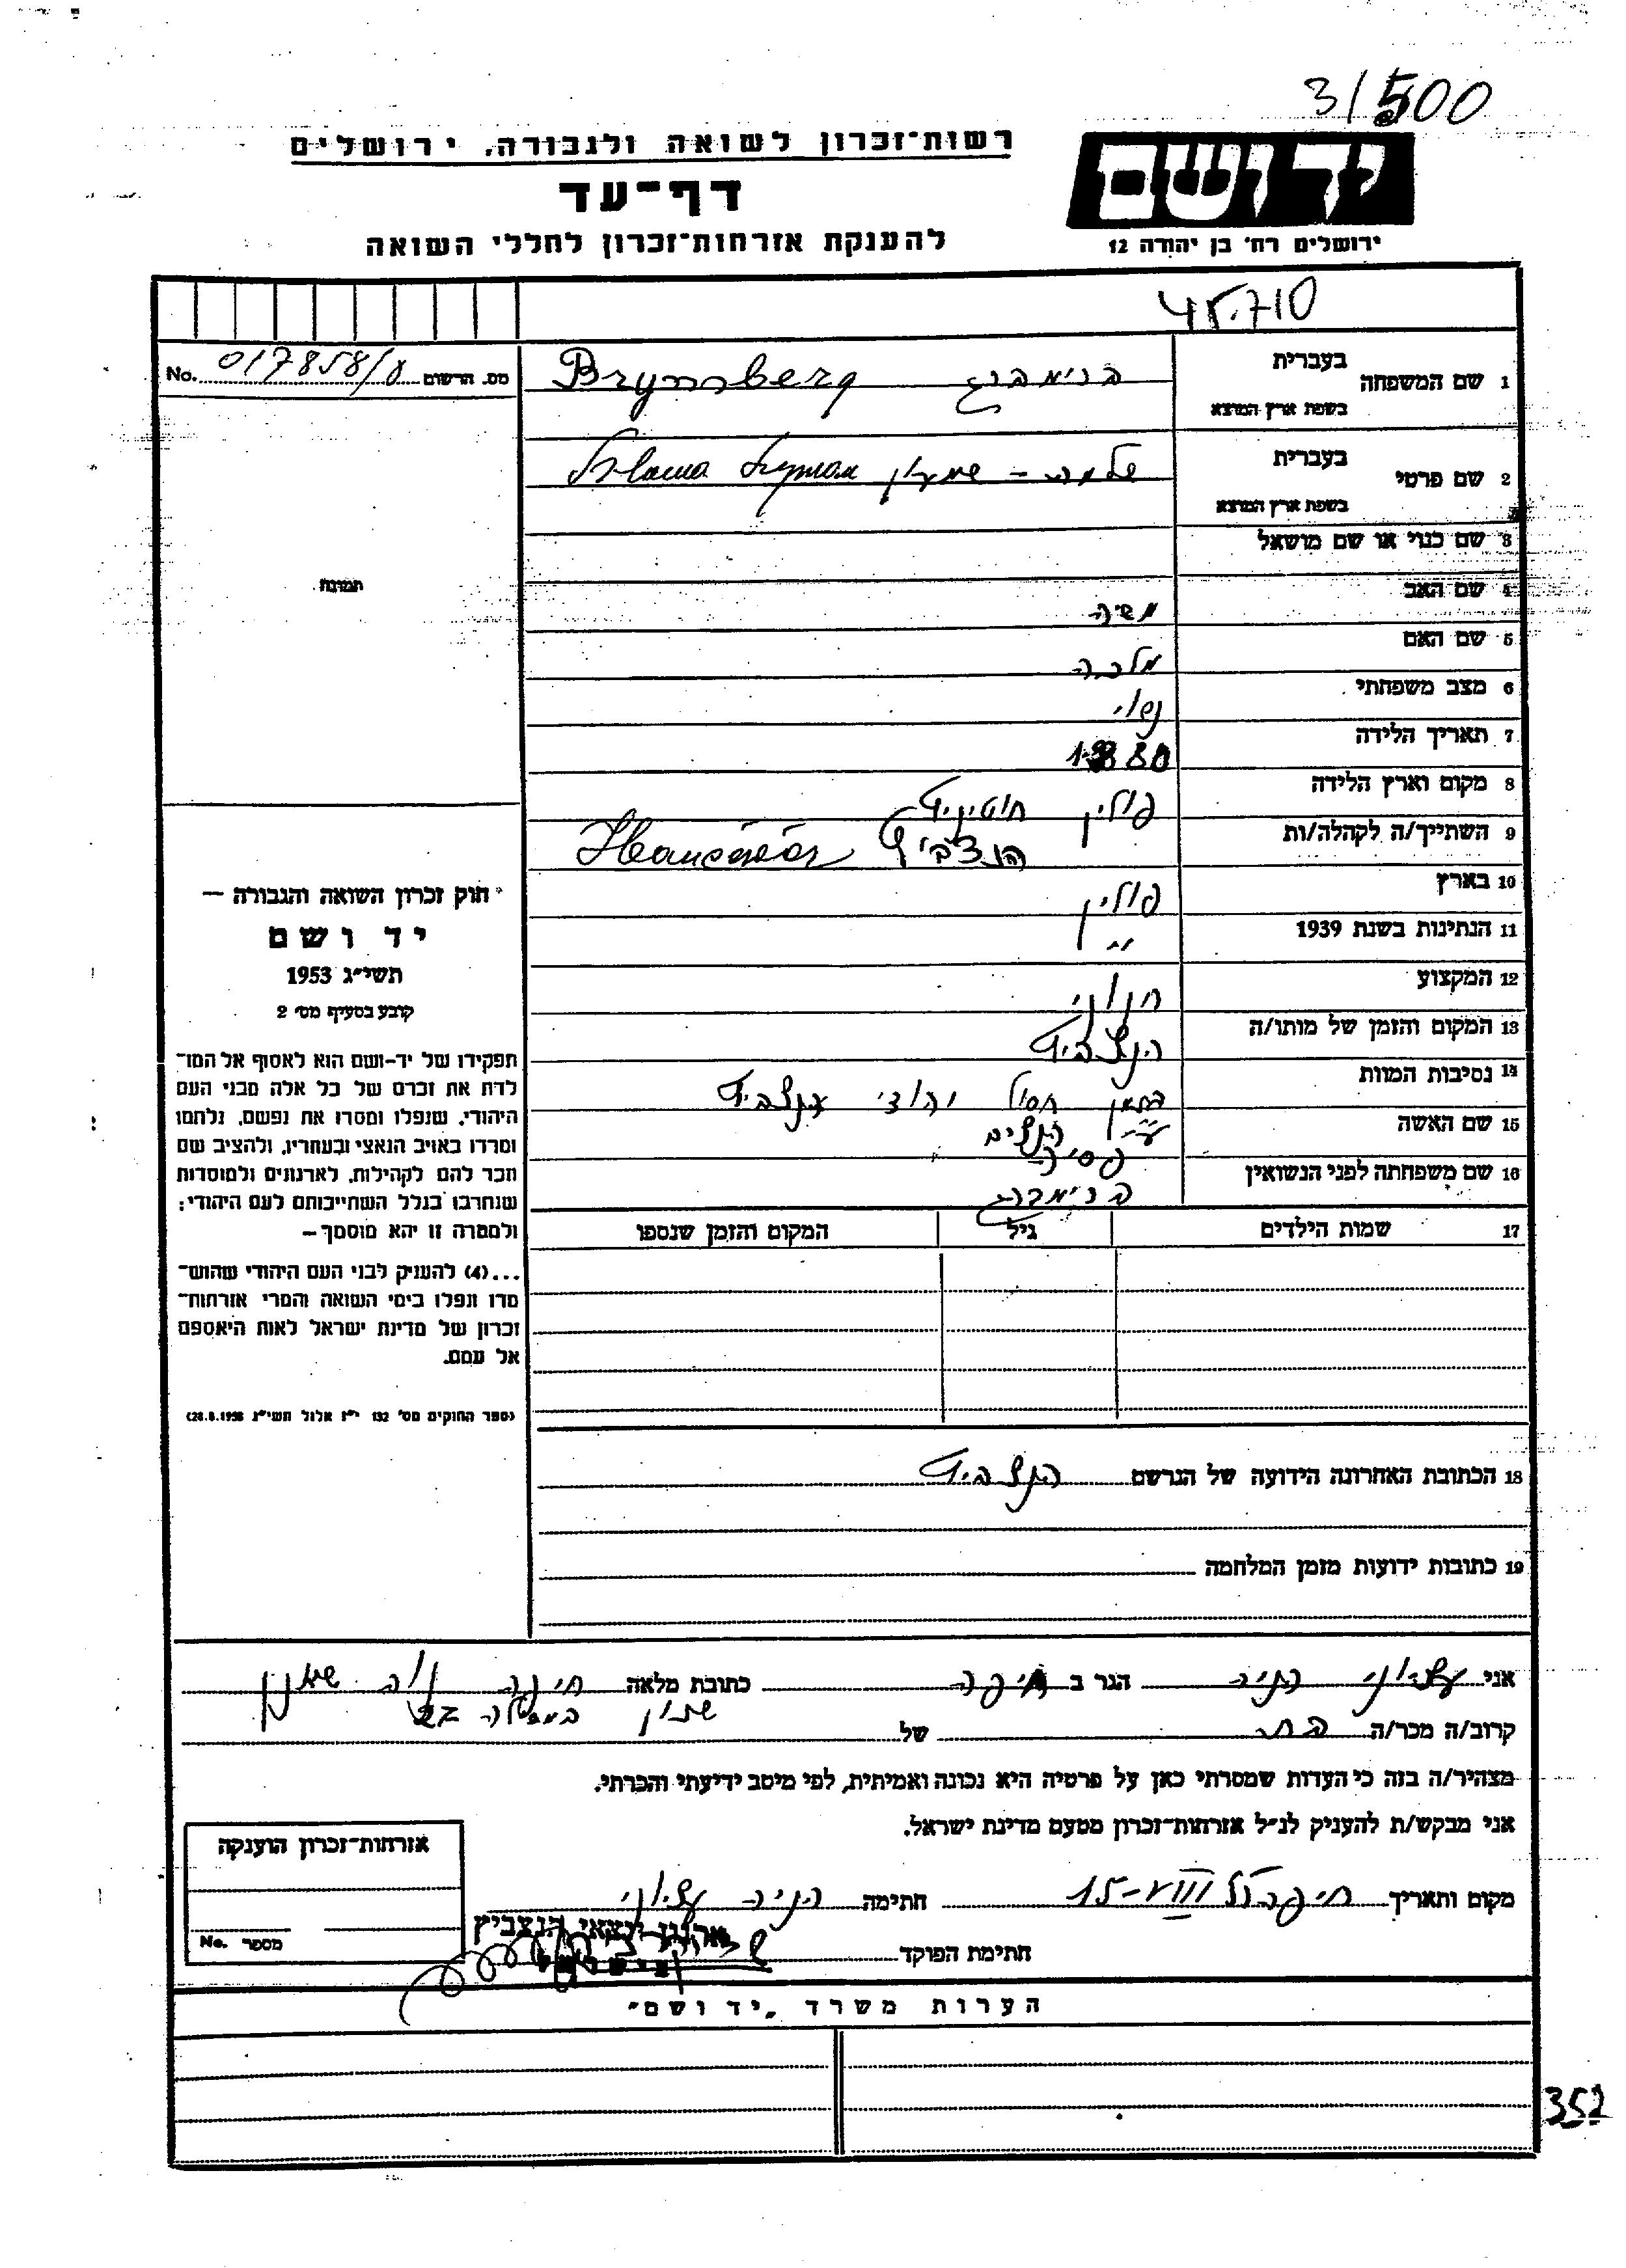 3/500
רשות־זכרון לשואה ולגבורה, ירושלים
דף־עד
להענקת אזרחות־זכרון לחללי השואה
ידושם
ירושלים רח׳ בן יהודה 12
45.710
No. 017858/8 מס. הרשום
1 שם המשפחה בעברית ברימברג
בשפת ארץ המוצא
2 שם פרטי בעברית שלמה - שמעון Szlama Szyman
בשפת ארץ המוצא
3 שם כנוי או שם מושאל
4 שם האב משה
5 שם האם מלכה
6 מצב משפחתי נשוי
7 תאריך הלידה 1880
8 מקום וארץ הלידה פולין
9 השתייך/ה לקהלה/ות הנצביץ
10 בארץ פולין
11 הנתינות בשנת 1939 "
12 המקצוע חנוני
13 המקום והזמן של מותו/ה הנצביץ
14 נסיבות המוות בזמן חסול יהודי הנצביץ
ע״י הנצים
15 שם האשה פסיה
16 שם משפחתה לפני הנשואין ברימברג
17 שמות הילדים גיל המקום והזמן שנספו
תמונה
חוק זכרון השואה והגבורה —
יד ושם
תשי״ג 1953
קובע בסעיף מס׳ 2
תפקידו של יד-ושם הוא לאסוף אל המו־
לדת את זכרם של כל אלה מבני העם
היהודי, שנפלו ומסרו את נפשם, נלחמו
ומרדו באויב הנאצי ובעוזריו, ולהציב שם
וזכר להם לקהילות, לארגונים ולמוסדות
שנחרבו בגלל השתייכותם לעם היהודי;
ולמטרה זו יהא מוסמך —
...(4) להעניק לבני העם היהודי שהוש־
מדו ונפלו בימי השואה והמרי אזרחות־
זכרון של מדינת ישראל לאות היאספם
אל עמם.
(ספר החוקים מס׳ 132 י״ז אלול תשי״ג 28.8.1953)
18 הכתובת האחרונה הידועה של הנרשם הנצביץ
19 כתובות ידועות מזמן המלחמה
אני עציוני הניה הגר ב חיפה כתובת מלאה חיפה נוה שאנן
שכון
קרוב/ה מכר/ה בת של
מצהיר/ה בזה כי העדות שמסרתי כאן על פרטיה היא נכונה ואמיתית, לפי מיטב ידיעתי והכרתי.
אני מבקש/ת להעניק לנ״ל אזרחות־זכרון מטעם מדינת ישראל.
מקום ותאריך חיפה 15-VIII חתימה הניה עציוני
ארגון יוצאי הנצביץ
חתימת הפוקד
אזרחות־זכרון הוענקה
No. מספר
הערות משרד „יד ושם״
352